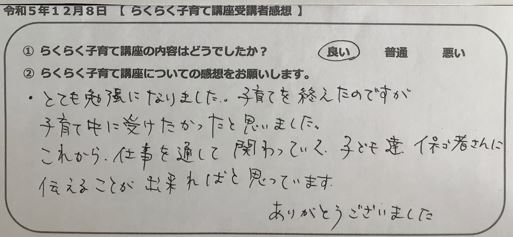 令和５年１２月８日 【 らくらく子育て講座受講者感想 】
① らくらく子育て講座の内容はどうでしたか？ 良い 普通 悪い
② らくらく子育て講座についての感想をお願いします。
・とても勉強になりました。子育てを終えたのですが
子育て中に受けたかったと思いました。
これから、仕事を通して関わっていく、子ども達、保ゴ者さんに
伝えることが出来ればと思っています。
ありがとうございました